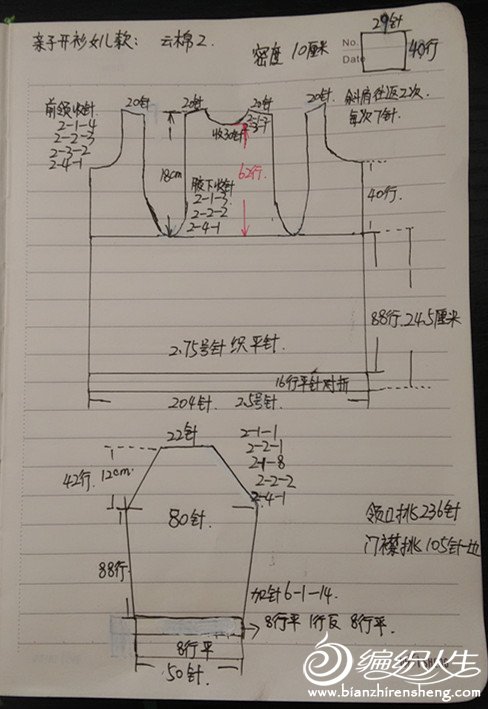 亲子开衫女儿款： 云棉2.
密度 10厘米
No.
Date
29针
40行
前领收针
2-1-4
2-2-3
2-3-2
2-4-1
20针
20针
20针
20针
斜肩往返2次
每次7针.
收30针
2-1-2
2-3-1
18cm
腋下收针
2-1-3
2-2-2
2-4-1
62行
40行
88行.24.5厘米
2.75号针 织平针.
16行平针对折
204针. 2.5号针
22针
2-1-1
2-2-1
2-1-8
2-2-2
2-4-1
42行
12cm
80针
领口挑236针
门襟挑105针一边
88行
加针6-1-14.
8行平 1行反 8行平.
8行平
50针
编织人生
www.bianzhirensheng.com